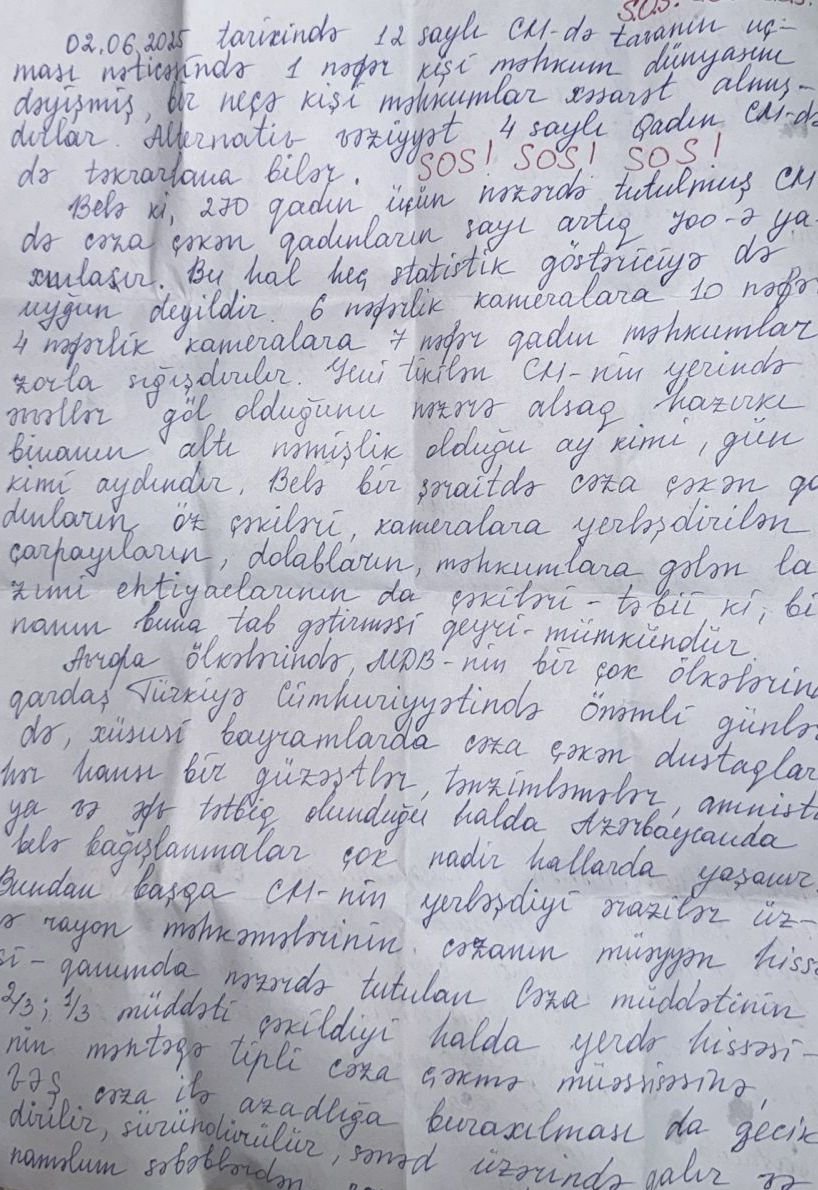 S.O.S.
02.06.2025 tarixində 12 saylı CM-də tavanın uç-
ması nəticəsində 1 nəfər kişi məhkum dünyasını
dəyişmiş, bir neçə kişi məhkumlar xəsarət almış-
dırlar. Alternativ vəziyyət 4 saylı Qadın CM-də
də təkrarlana bilər. SOS! SOS! SOS!
Belə ki, 270 qadın üçün nəzərdə tutulmuş CM
də cəza çəkən qadınların sayı artıq 700-ə ya-
xınlaşır. Bu hal heç statistik göstəriciyə də
uyğun deyildir. 6 nəfərlik kameralara 10 nəfə
4 nəfərlik kameralara 7 nəfər qadın məhkumlar
zorla sığışdırılır. Yeni tikilən CM-nin yerində
əvəllər göl olduğunu nəzərə alsaq hazırkı
binanın altı nəmişlik olduğu ay kimi, gün
kimi aydındır. Belə bir şəraitdə cəza çəkən qa
dınların öz çəkiləri, kameralara yerləşdirilən
çarpayıların, dolabların, məhkumlara gələn la
zımi ehtiyaclarının da çəkiləri - təbii ki, bi
nanın buna tab gətirməsi qeyri-mümkündür.
Avropa ölkələrində, MDB-nin bir çox ölkələrin
qardaş Türkiyə Cümhuriyyətində önəmli günlə
də, xüsusi bayramlarda cəza çəkən dustaqlar
hər hansı bir güzəştlər, tənzimləmələr, amnist
ya və əfv tətbiq olunduğu halda Azərbaycanda
belə bağışlanmalar çox nadir hallarda yaşanır.
Bundan başqa CM-nin yerləşdiyi ərazilər üz-
ə rayon məhkəmələrinin cəzanın müəyyən hissə
si - qanunda nəzərdə tutulan cəza müddətinin
2/3; 1/3 müddəti çəkildiyi halda yerdə hissəsi-
nin məntəqə tipli cəza çəkmə müəssisəsinə,
cəza ilə azadlığa buraxılması da gecik
dirilir, süründürülür, sənəd üzərində qalır və
naməlum səbəblərdən